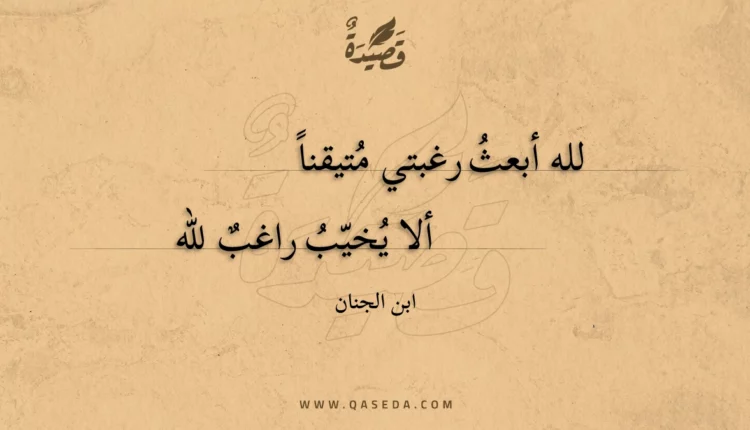 قَصِيْدَةٌ
لله أبعثُ رغبتي مُتيقناً
ألا يُخيّبُ راغبٌ لله
ابن الجنان
WWW.QASEDA.COM